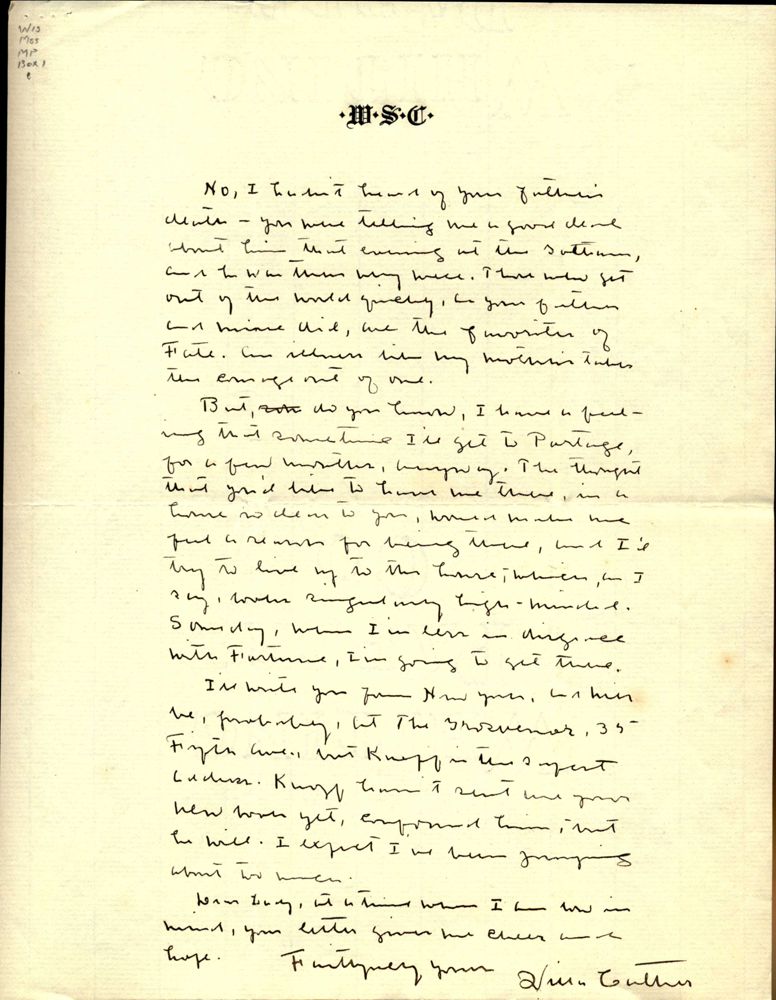 Wis
Mss
MP
Box 1
·W·S·C·
No, I hadn't heard of your father's
death – you were telling me a good deal
about him that evening at the
and he was then very well. Those who get
out of the world quickly, as your father
and mine did, are the favorites of
Fate. An illness like my mother's takes
the courage out of one.
But, do you know, I have a feel-
ing that sometime I'll get to Portage,
for a few months, anyway. The thought
that you'd like to have me there, in a
house so dear to you, would make me
feel a reason for being there, and I'd
try to live up to the house; which, as I
say, looks singularly high-minded.
Someday, when I'm less in disgrace
with Fortune, I'm going to get there.
I'll write you from New York, and will
be, probably, at The Grosvenor, 35
Fifth Ave., but Knopf is the safest
address. Knopf hasn't sent me your
new book yet, confound him; but
he will. I expect I've been jumping
about too much.
Dear Lady, at a time when I am low in
mind, your letter gives me cheer and
hope. Faithfully yours
Willa Cather